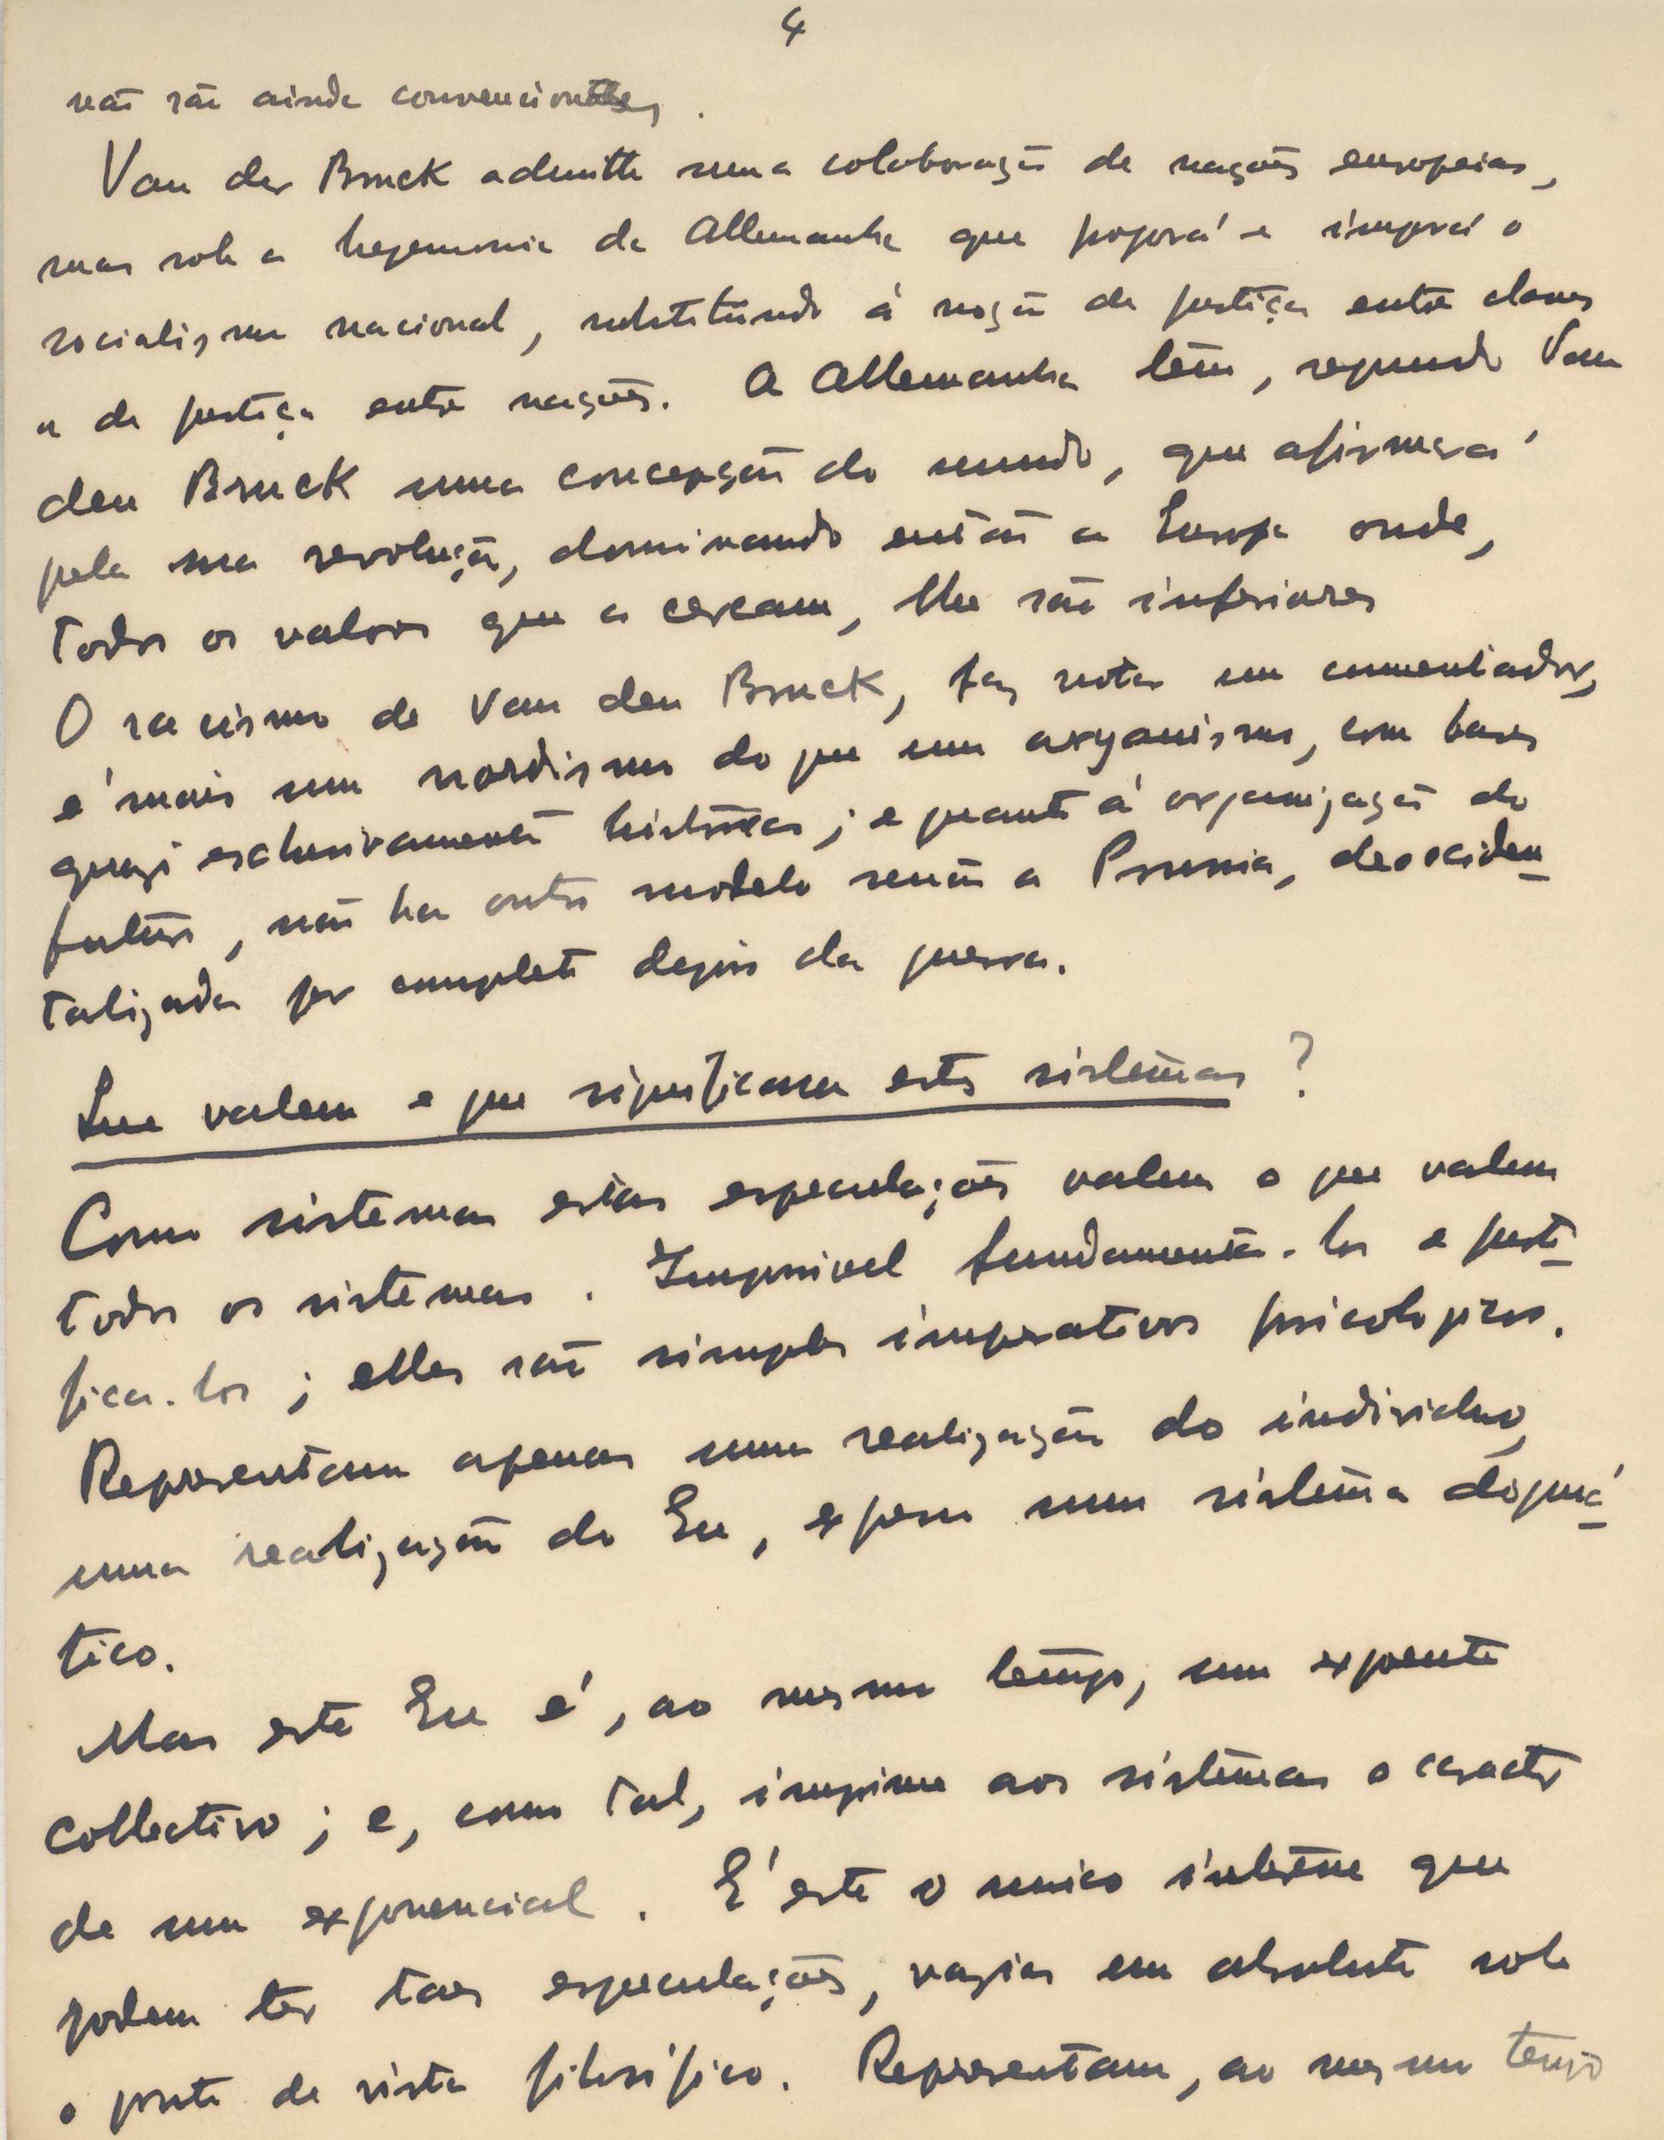 4
não são ainda convencionaes.
Van der Bruck admitte uma colaboração de nações europeias,
mas sob a hegemonia da Allemanha que proporá e imporá o
socialismo nacional, substituindo á noção de justiça entre classes
a de justiça entre nações. A Allemanha têm, segundo Van
den Bruck uma concepção do mundo, que afirmará
pela sua revolução, dominando então a Europa onde,
todos os valores que a cercam, lhe são inferiores
O racismo de Van den Bruck, faz notar um comentador,
é mais um nordismo do que um aryanismo, com bases
quazi esclusivamente históricas; e quanto á organização do
futuro, não ha outro modelo senão a Prussia, desociden-
talizada por completo depois da guerra.
Que valem e que significam estes sistemas?
Como sistemas estas especulações valem o que valem
todos os sistemas. Impossivel fundamenta-los e justi-
fica-los; elles são simples imperativos psicologicos.
Representam apenas uma realização do individuo,
uma realização do Eu, expressa num sistema dogmá-
tico.
Mas este Eu é, ao mesmo tempo, um expoente
collectivo; e, como tal, imprime aos sistemas o caracter
de um exponencial. É este o unico interesse que
podem ter taes especulações, vazias em absoluto sob
o ponto de vista filosifico. Representam, ao mesmo tempo